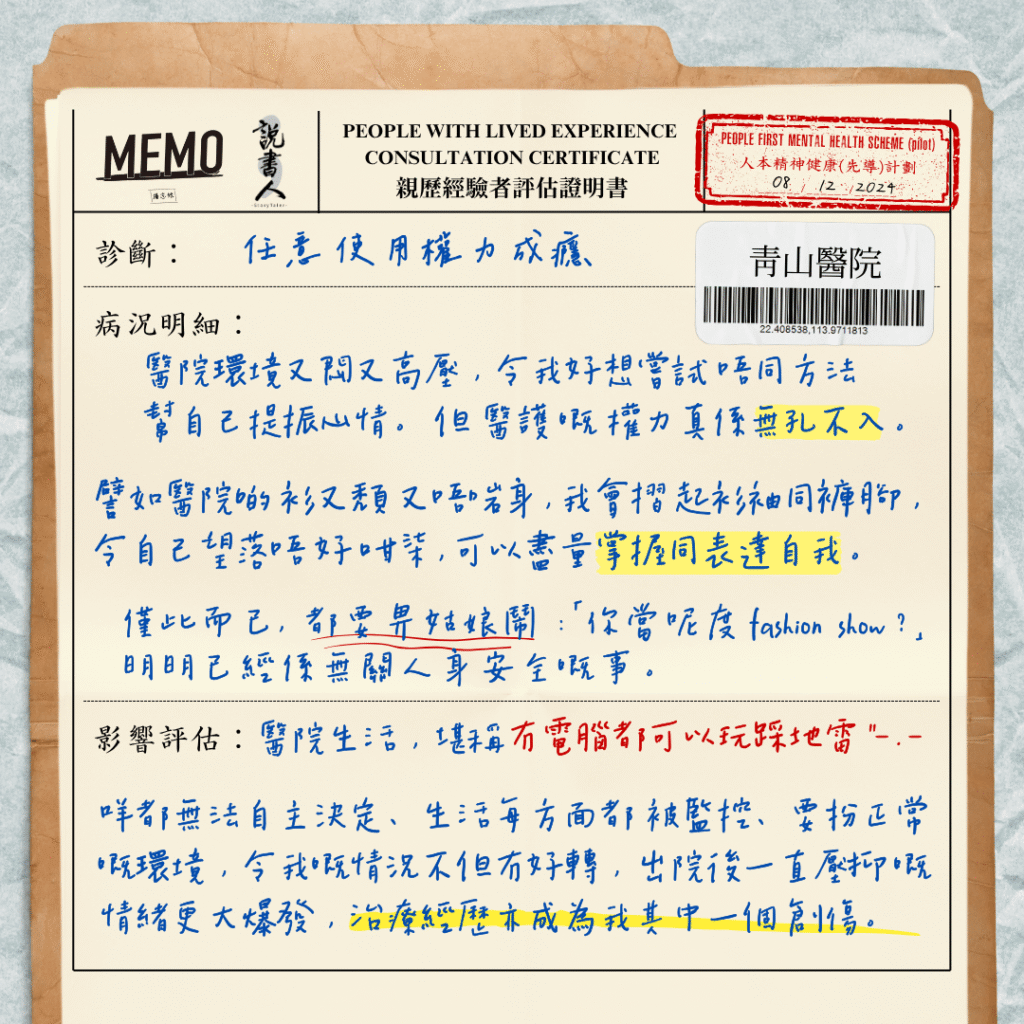 MEMO
說書人
PEOPLE WITH LIVED EXPERIENCE
CONSULTATION CERTIFICATE
親歷經驗者評估證明書
PEOPLE FIRST MENTAL HEALTH SCHEME (pilot)
人本精神健康(先導)計劃
08 / 12 / 2024
診斷： 任意使用權力成癮
青山醫院
22.408538,113.9711813
病況明細：
醫院環境又悶又高壓，令我好想嘗試唔同方法
幫自己提振心情。但醫護嘅權力真係無孔不入。
譬如醫院啲衫又頹又唔啱身，我會摺起衫袖同褲腳，
令自己望落唔好咁柒，可以盡量掌握同表達自我。
僅此而已，都要畀姑娘鬧：「你當呢度fashion show？」
明明已經係無關人身安全嘅事。
影響評估：醫院生活，堪稱冇電腦都可以玩踩地雷"-.-
咩都無法自主決定、生活每方面都被監控、要扮正常
嘅環境，令我嘅情況不但冇好轉，出院後一直壓抑嘅
情緒更大爆發，治療經歷亦成為我其中一個創傷。